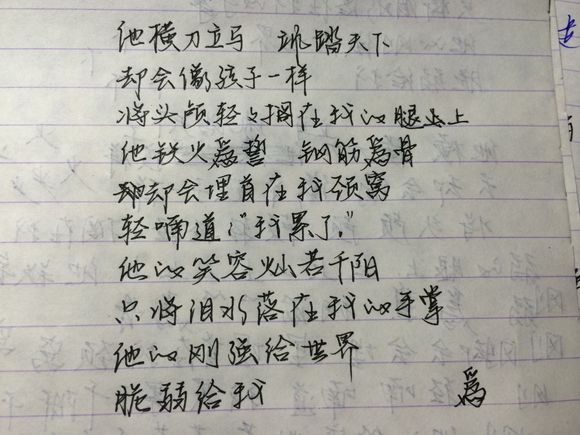 他横刀立马 跐踏天下
却会像孩子一样
将头颅轻轻搁在我的腿上
他铁火爲誓 钢筋爲骨
却会埋首在我颈窝
轻喃道:"我累了。"
他的笑容灿若千阳
只将泪水落在我的手掌
他的刚强给世界
脆弱给我
爲